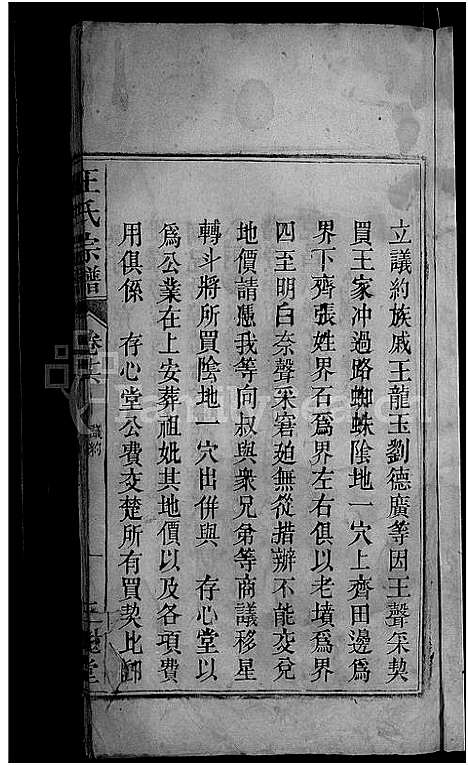 立議約族戚王龍玉劉德廣等因王聲采契
買王家冲過路蜘蛛陰地一穴上齊田邊爲
界下齊張姓界石爲界左右俱以老墳爲界
四至明白奈聲采窘廹無從措辦不能交兌
地價請慿我等向叔與衆兄弟等商議移星
轉斗將所買陰地一穴出併與 存心堂以
爲公業在上安葬祖妣其地價以及各項費
用俱係 存心堂公費交楚所有買契比卽
王氏宗譜
議約
一